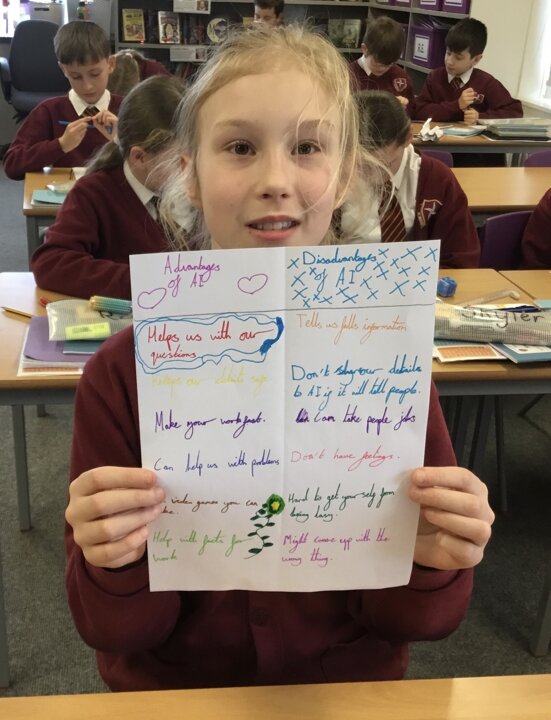 Advantages
of AI
Helps us with our
questions
keeps our details safe
Make your work fast.
Can help us with problems
video games you can
Help with facts for
work
Disadvantages
of AI
Tells us falls information
Don't share our details
to AI if it will tell people.
can take people jobs
Don't have feelings.
Hard to get your self from
being lazy.
Might come up with the
wrong thing.